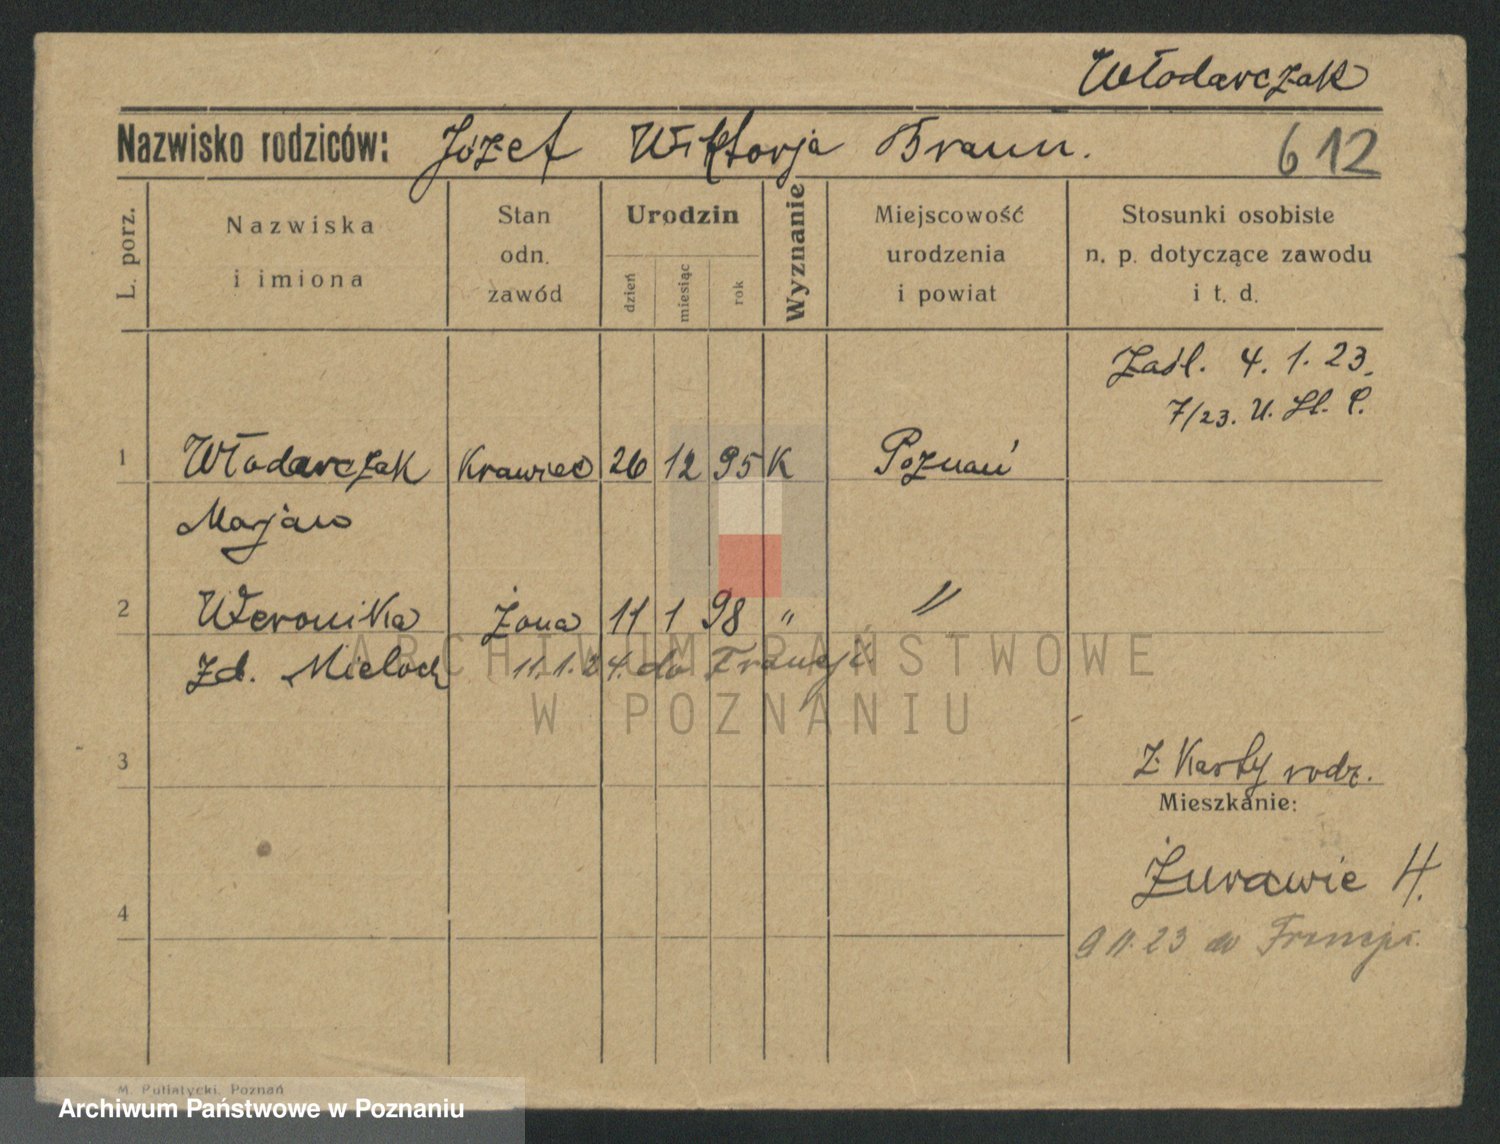 Włodarczak
Nazwisko rodziców: Józef Wiktorja Braun.
612
L. porz.
Nazwiska i imiona
Stan odn. zawód
Urodzin
dzień miesiąc rok
Wyznanie
Miejscowość urodzenia i powiat
Stosunki osobiste n. p. dotyczące zawodu i t. d.
Zaśl. 4. 1. 23.
7/23. U. St. P.
1 Włodarczak Krawiec 26 12 95 K Poznań
Marjan
2 Weronika Żona 11 1 98 " "
Zd. Mieloch 11.1.24. do Francji
ARCHIWUM PAŃSTWOWE
W POZNANIU
3 Z Karty rodz.
Mieszkanie:
Żurawie 4.
4
9 11. 23 do Francji.
M. Putiatycki, Poznań
Archiwum Państwowe w Poznaniu